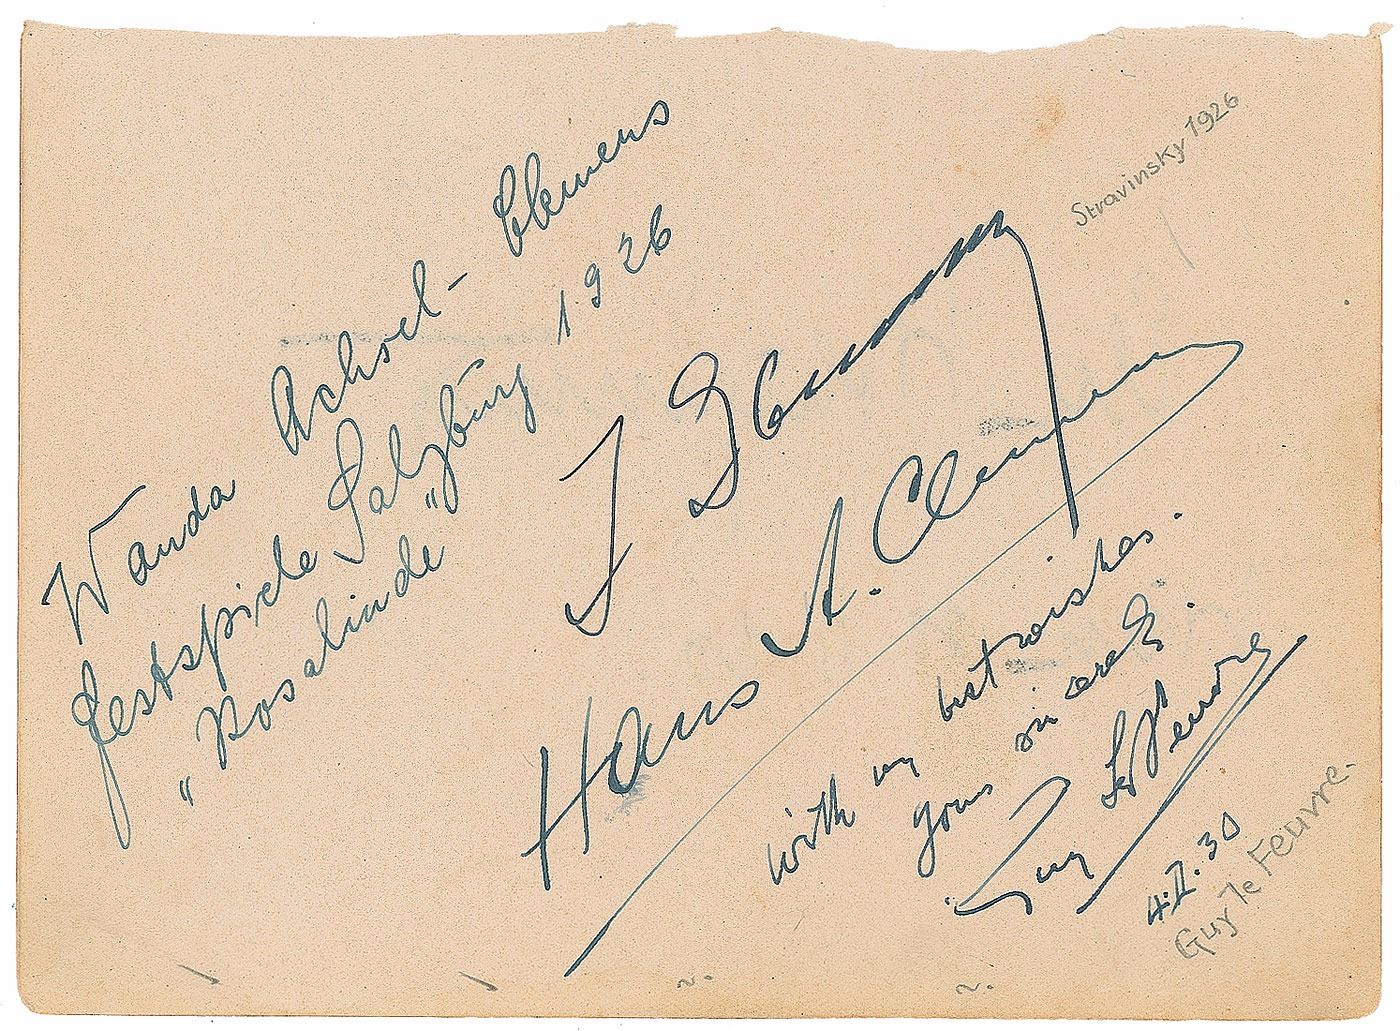 Wanda Achsel-Clemens
Festspiele Salzburg 1926
"Rosalinde"
Stravinsky 1926
Hans A. Clemens
with my best wishes.
yours sincerely.
Guy Le Feuvre
4.II.30
Guy le Feuvre.